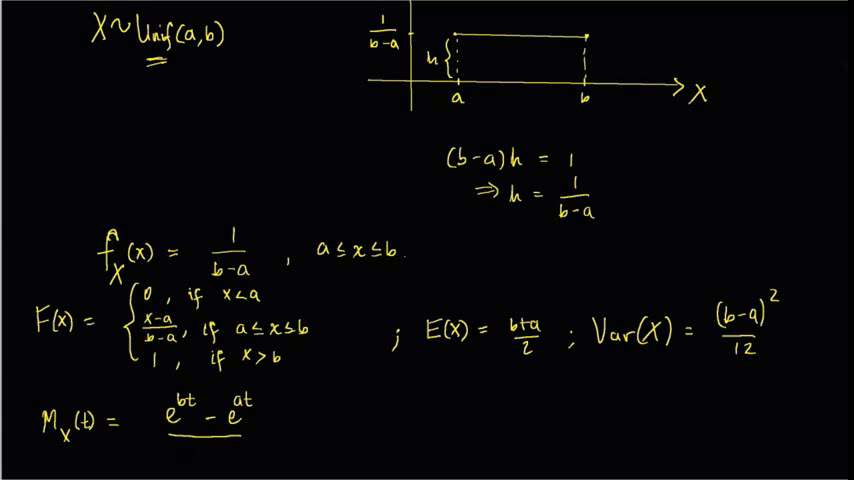 X ~ Unif(a,b)
1/(b-a)
h
a b X
(b-a)h = 1
⇒ h = 1/(b-a)
f_X(x) = 1/(b-a) , a ≤ x ≤ b.
F(x) = { 0 , if x<a
(x-a)/(b-a) , if a ≤ x ≤ b
1 , if x > b
; E(X) = (b+a)/2 ; Var(X) = (b-a)^2/12
M_X(t) = e^bt - e^at